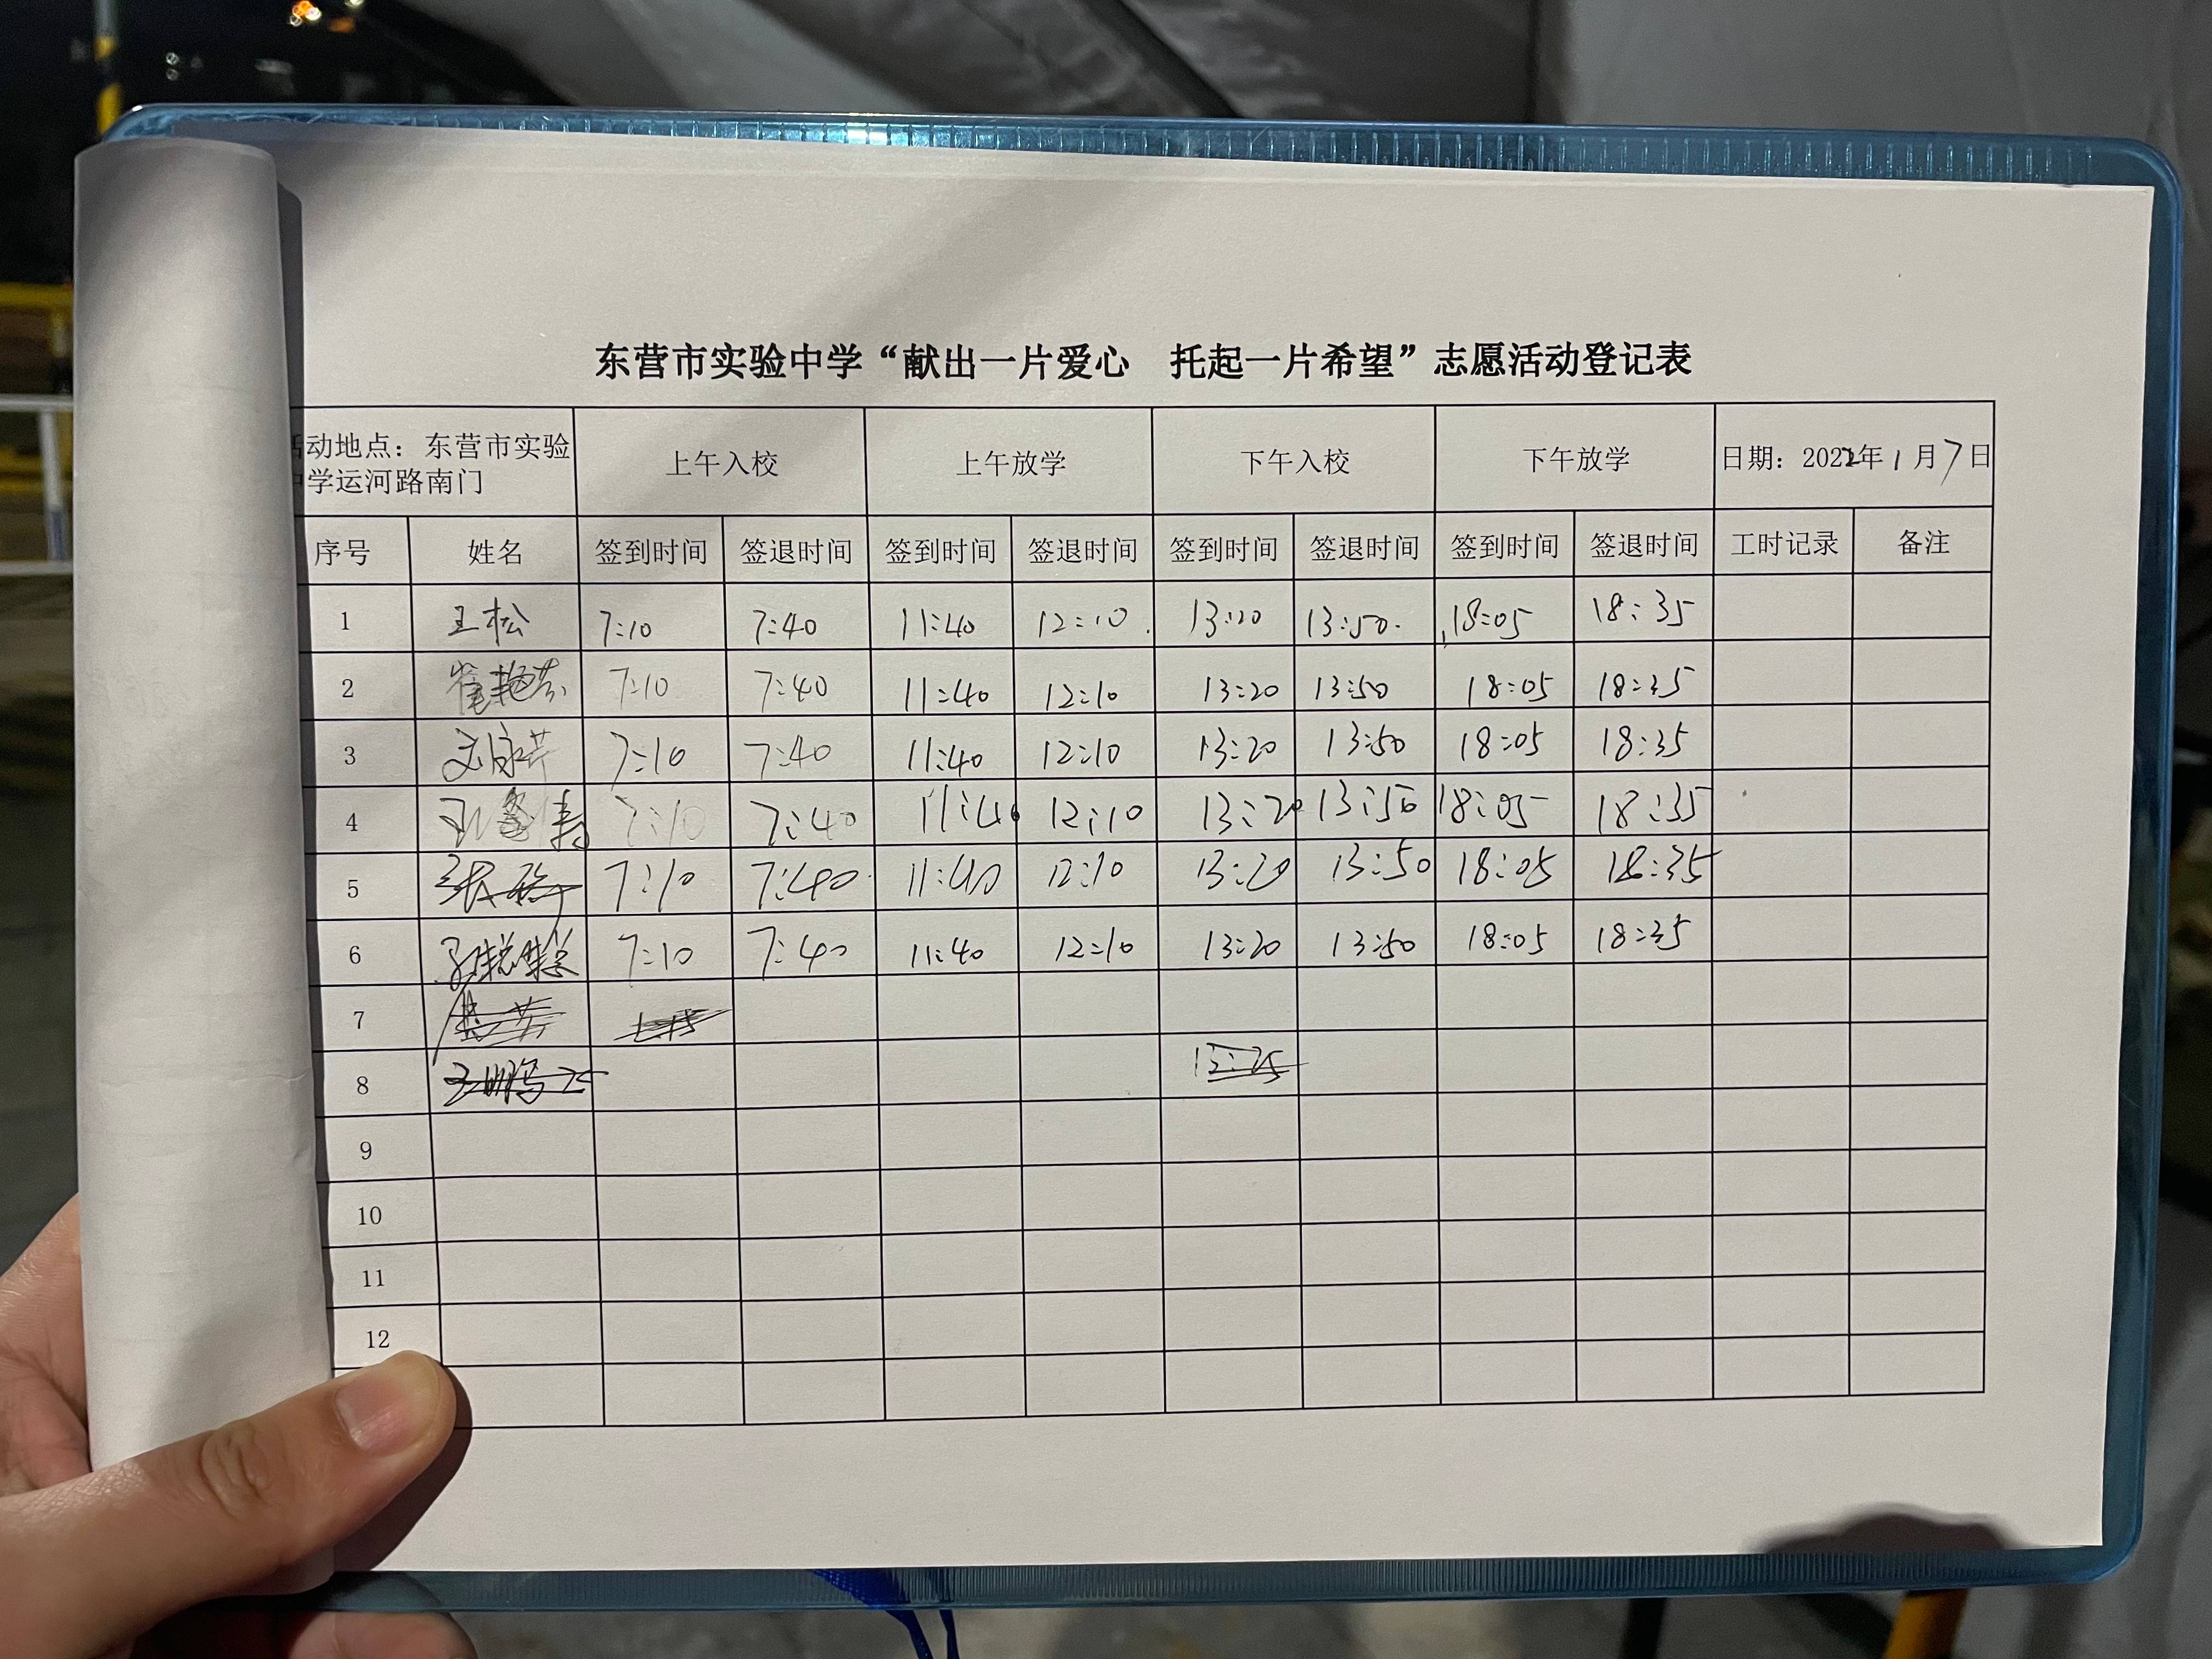 东营市实验中学“献出一片爱心 托起一片希望”志愿活动登记表
动地点：东营市实验 上午入校 上午放学 下午入校 下午放学 日期：2022年1月7日
中学运河路南门
序号 姓名 签到时间 签退时间 签到时间 签退时间 签到时间 签退时间 签到时间 签退时间 工时记录 备注
1 王松 7:10 7:40 11:40 12:10 13:20 13:50 18:05 18:35
2 崔艳芬 7:10 7:40 11:40 12:10 13:20 13:50 18:05 18:35
3 7:10 7:40 11:40 12:10 13:20 13:50 18:05 18:35
4 7:10 7:40 11:40 12:10 13:20 13:50 18:05 18:35
5 7:10 7:40 11:40 12:10 13:20 13:50 18:05 18:35
6 7:10 7:40 11:40 12:10 13:20 13:50 18:05 18:35
7
8
9
10
11
12